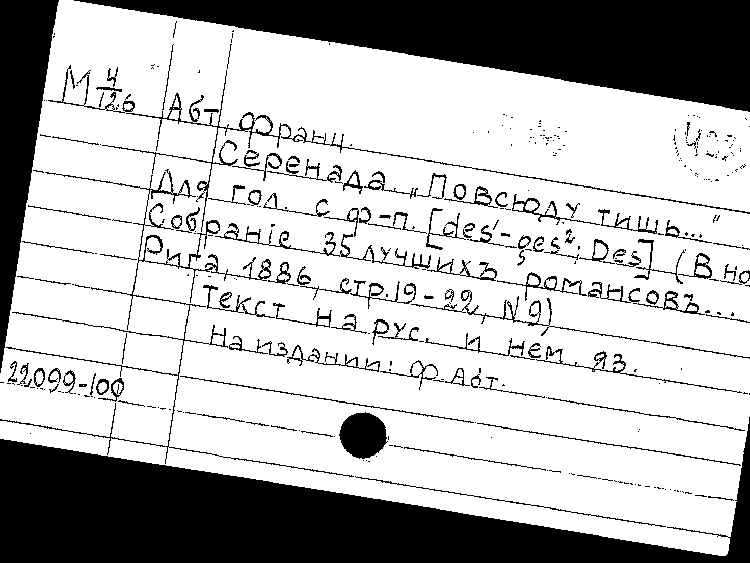 М 4/126
Абт, Франц.
Серенада. „Повсюду тишь..."
Для гол. с ф-п. [des¹-ges²; Des] (В но
Собраніе 35 лучшихъ романсовъ...
Рига, 1886, стр. 19-22, N 9)
Текст на рус. и нем. яз.
На издании: Ф. Абт.
22099-100